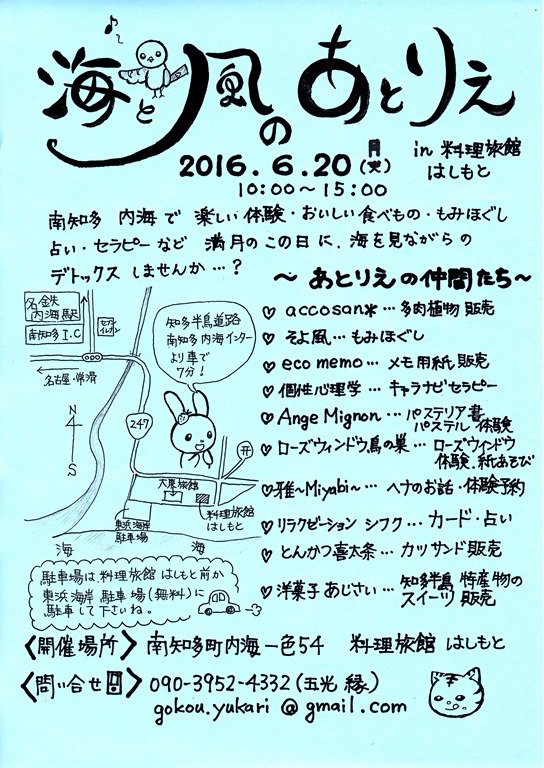 海と風のあとりえ
2016.6.20(月)(火)
in 料理旅館
はしもと
10:00～15:00
南知多 内海で 楽しい体験・おいしい食べもの・もみほぐし
占い・セラピーなど 満月のこの日に、海を見ながらの
デトックス しませんか…?
～ あとりえの仲間たち～
♡ accosan* … 多肉植物 販売
♡ そよ風 … もみほぐし
♡ eco memo … メモ用紙 販売
♡ 個性心理学 … キャラナビセラピー
♡ Ange Mignon … パステリア書
パステル 体験
♡ ローズウィンドウ鳥の巣 … ローズウインドウ
体験、紙あそび
♡ 雅～Miyabi～ … ヘナのお話・体験予約
♡ リラクゼーション シフク … カード・占い
♡ とんかつ喜太条 … カツサンド販売
♡ 洋菓子 あじさい … 知多半島 特産物の
スイーツ 販売
名鉄
内海駅
南知多I.C
セブン
イレブン
名古屋・常滑
知多半島道路
南知多 内海インター
より車で
7分!
N
S
247
卍
大東旅館
料理旅館
はしもと
東浜海岸
駐車場
海
海
駐車場は、料理旅館 はしもと前か
東浜海岸 駐車場(無料)に
駐車して下さいね。
〈開催場所〉 南知多町内海一色54 料理旅館 はしもと
〈問い合せ〉 090-3952-4332 (五光 縁)
gokou.yukari @ gmail.com